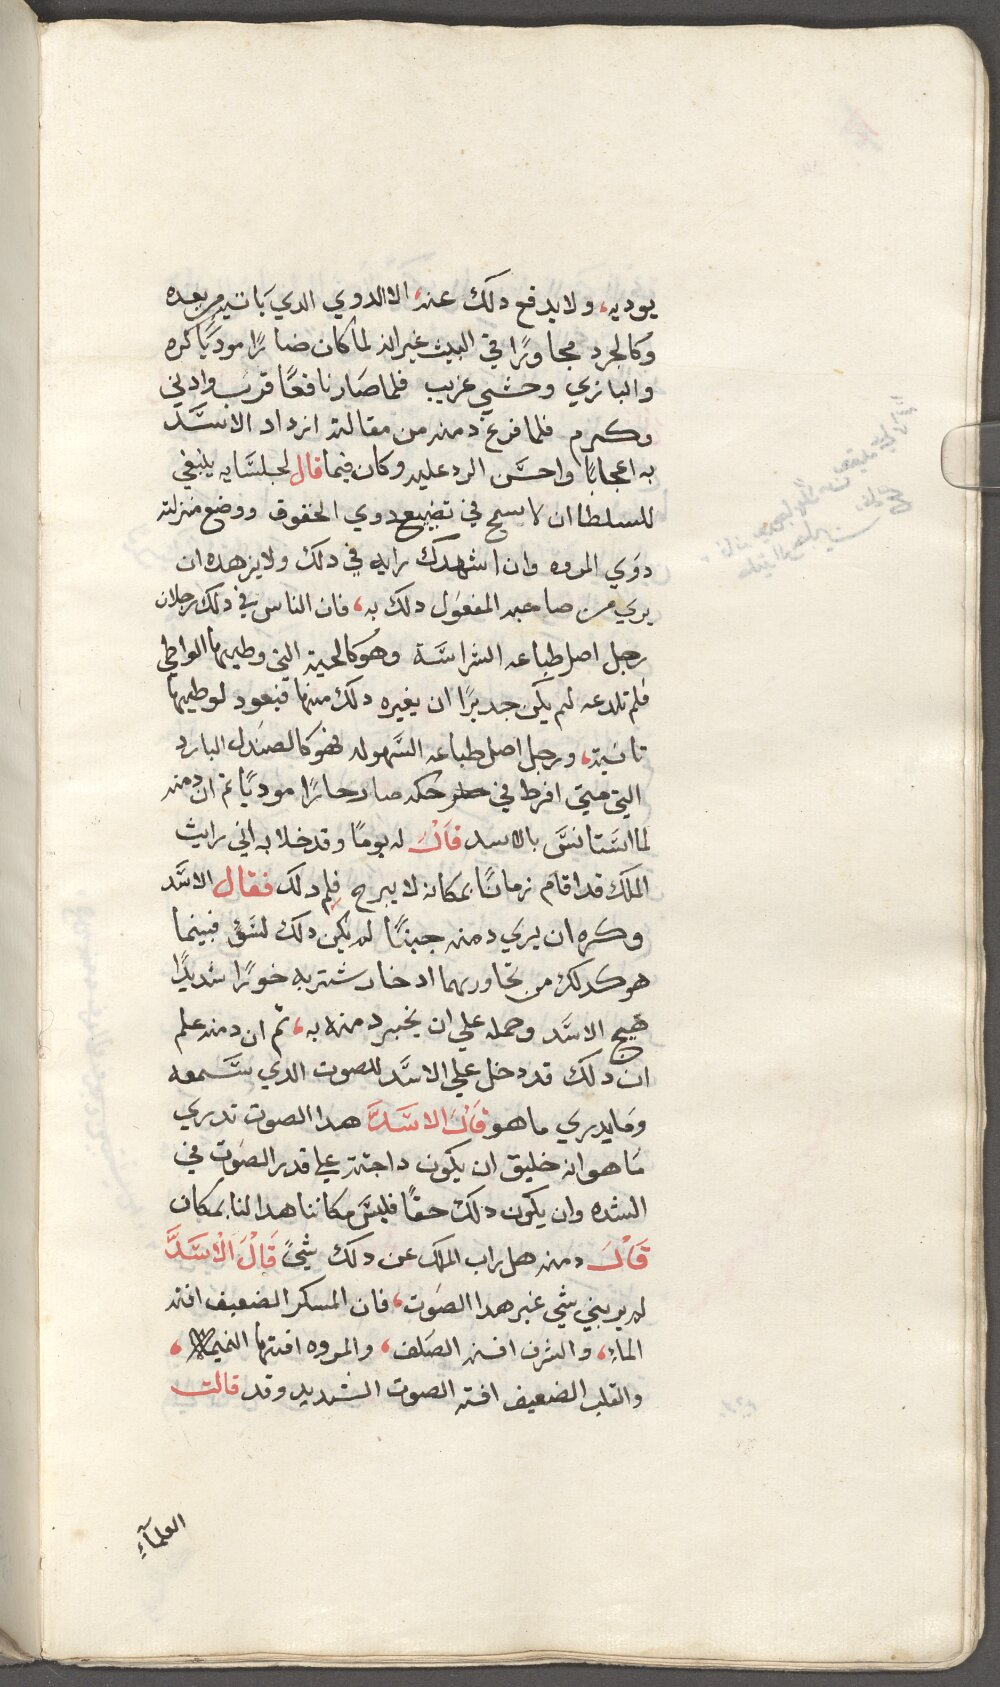 يوديه، ولا يدفع دلك عنه، الا الدوي الدي ياتيه من بعده
وكالجرد مجاورًا في البيت غير انه لما كان ضارًا موديًا كره
والبازي وحشي غريب فلما صار نافعًا قرب وادني
وكرم فلما فرغ دمنه من مقالته ازداد الاسد
به اعجابًا واحسن الرد عليه وكان فيما قال لجلسايه ينبغي
للسلطان ان لا يسمح في تضييع دوي الحقوق ووضع منزلته
دوي المروه وان اشهدك رايه في دلك ولا يزهده ان
يري من صاحبه المفعول دلك به، فان الناس في دلك رجلان
رجل اصل طباعه الشراسة وهو كالحية التي وطيها الواطي
فلم تلدعه لم يكن جديرًا ان يغيره دلك منها فيعود لوطيها
تانية، ورجل اصل طباعه السهوله فهو كالصندل البارد
التي متي افرط في حكه صار حارًا موديًا ثم ان دمنه
لما استانس بالاسد قال له يومًا وقد خلا به اني رايت
الملك قد اقام زمانًا بمكانه لا يبرح فلم دلك فقال الاسد
وكره ان يري دمنه جبنًا لم يكن دلك لشي فبينما
هو كدلك من تحاورهما اد خار شتربه خورًا شديدًا
هيج الاسد وحمله علي ان يخبر دمنه به، ثم ان دمنه علم
ان دلك قد دخل علي الاسد للصوت الدي سمعه
وما يدري ما هو قال الاسد هدا الصوت تدري
ما هو انه خليق ان يكون داجثته علي قدر الصوت في
الشده وان يكون دلك حقًا فليس مكاننا هدا لنا بمكان
قال دمنه هل راب الملك عن دلك شيً قال الاسد
لم يريبني شي غير هدا الصوت، فان المسكر الضعيف افته
الماء، والشرف افته الصلف، والمروه افتها النميمه،
والقلب الضعيف افته الصوت الشديد وقد قالت
العلمآء